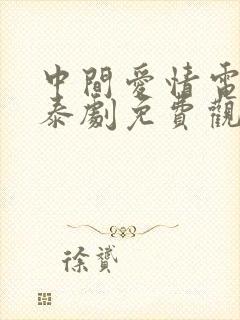 中間愛情電
泰劇免費觀
徐贇